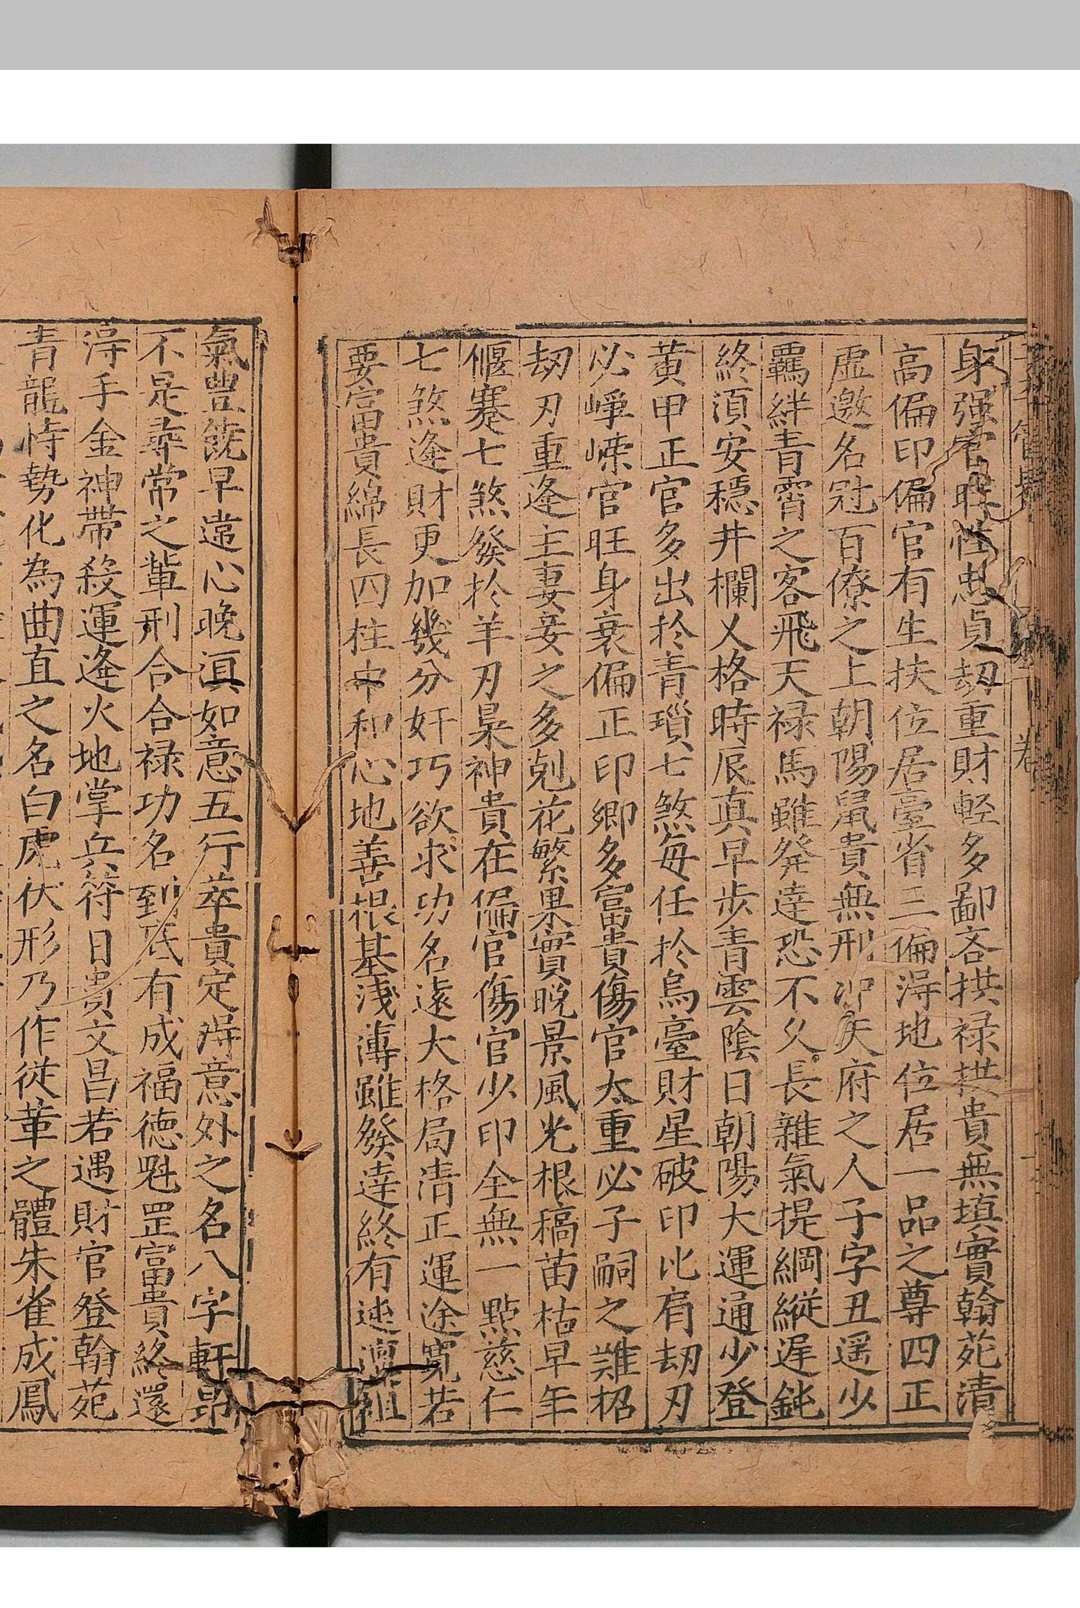 身强官旺性忠貞劫重財輕多鄙吝拱禄拱貴無填實翰苑清
高偏印偏官有生扶位居臺省三偏淂地位居一品之尊四正
虛邀名冠百僚之上朝陽鼠貴無刑冲天府之人子字丑遥少
羈絆青霄之客飛天禄馬雖発達恐不久長雜氣提綱縱遅鈍
終湏安穏井欄乂格時辰真早步青雲陰日朝陽大運通少登
黄甲正官多出扵青瑣七煞每任扵烏臺財星破印比肩刼刃
必崢嶸官旺身衰偏正印卿多富貴傷官太重必子嗣之難招
刼刃重逢主妻妾之多剋花繁果實晚景風光根稿苗枯早年
偃蹇七煞發扵羊刃梟神貴在偏官傷官少印全無一點慈仁
七煞逢財更加幾分奸巧欲求功名遠大格局清正運途寛若
要富貴綿長四柱中和心地善根基淺薄雖發達終有迍邅祖
氣豐饒早達心晚運如意五行萃貴定淂意外之名八字軒昂
不是尋常之輩刑合合禄功名到底有成福徳魁罡富貴終還
淂手金神帶殺運逢火地掌兵符日貴文昌若遇財官登翰苑
青龍恃勢化為曲直之名白虎伏形乃作従革之體朱雀成鳳